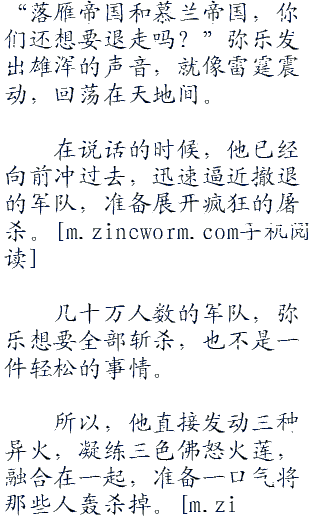 “落雁帝国和慕兰帝国，你
们还想要退走吗？”弥乐发
出雄浑的声音，就像雷霆震
动，回荡在天地间。
在说话的时候，他已经
向前冲过去，迅速逼近撤退
的军队，准备展开疯狂的屠
杀。[m.zincworm.com手机阅
读]
几十万人数的军队，弥
乐想要全部斩杀，也不是一
件轻松的事情。
所以，他直接发动三种
异火，凝练三色佛怒火莲，
融合在一起，准备一口气将
那些人轰杀掉。[m.zi